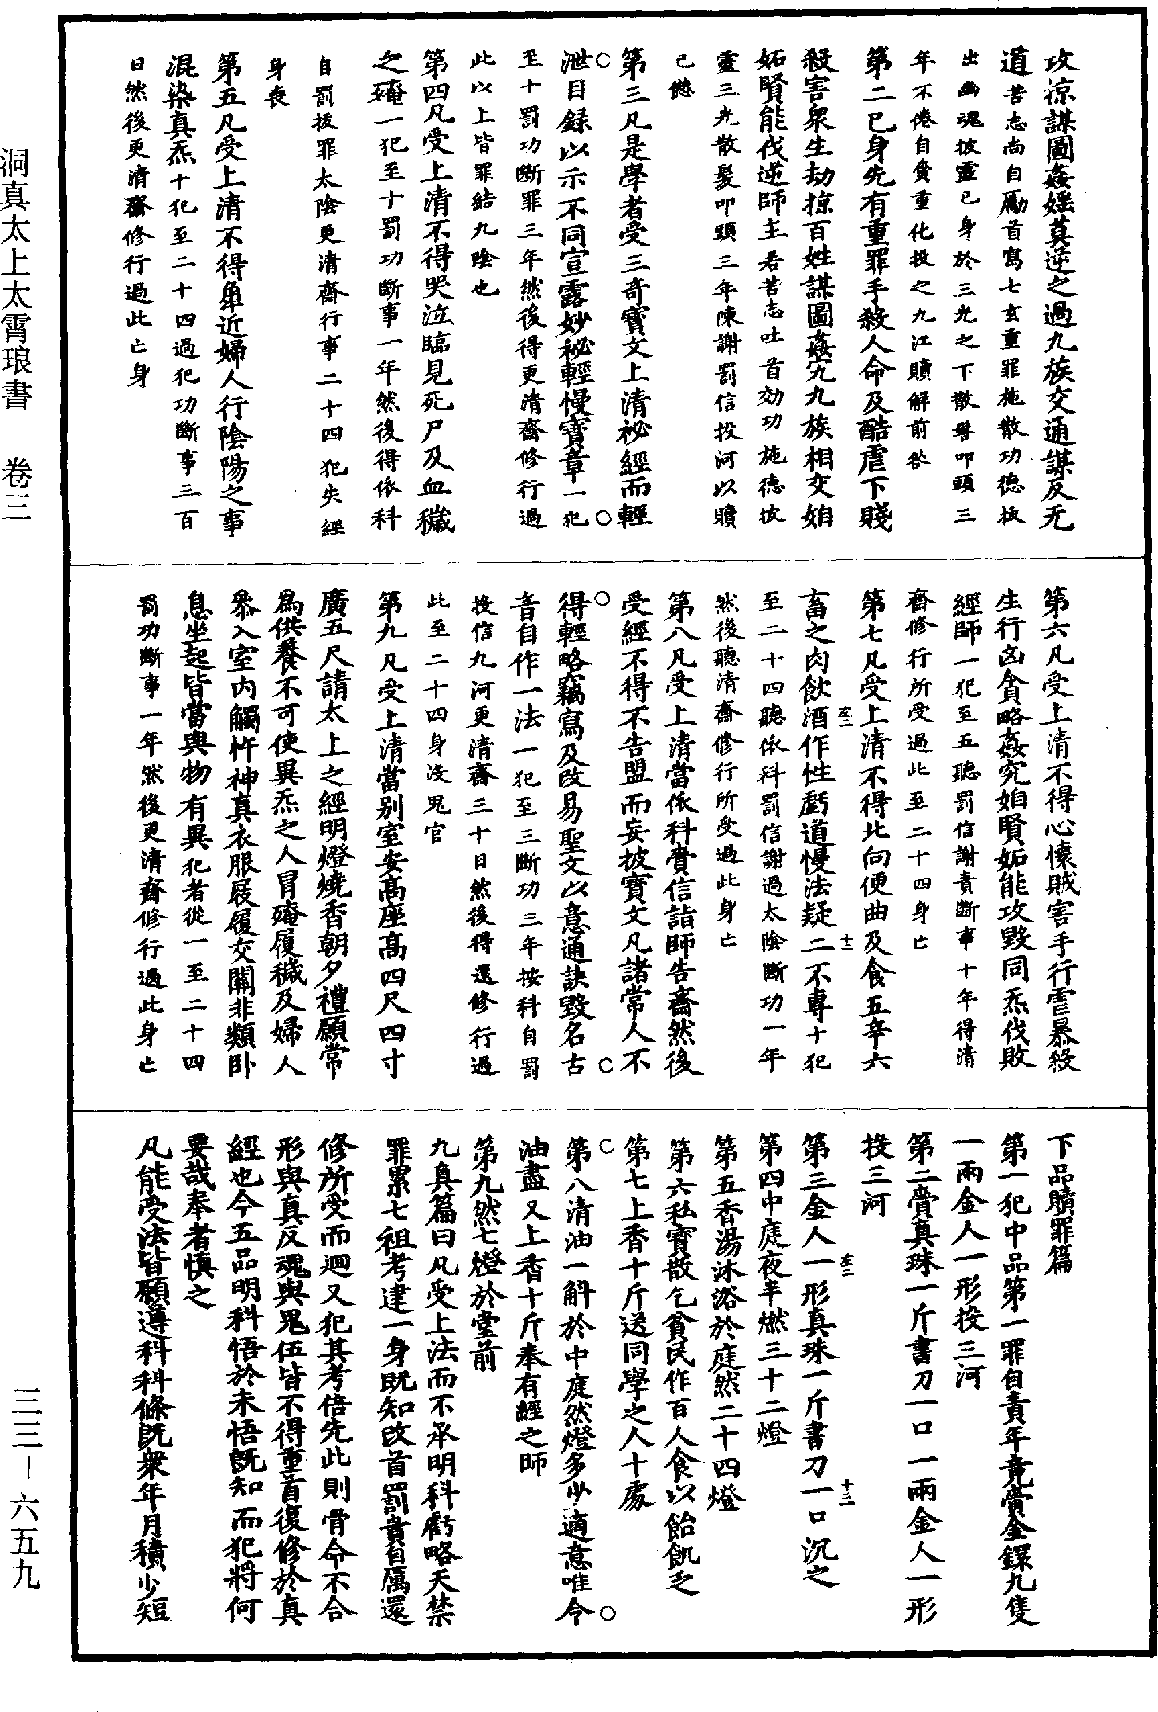 攻掠謀圖姦婬莫逆之過九族交通謀反无
道苦志尚自勵首寫七玄重罪施散功德拔
出幽魂披靈已身於三光之下散髮叩頭三
年不倦自責重化投之九江贖解前咎
第二已身先有重罪手殺人命及酷虐下賤
殺害衆生劫掠百姓謀圖姦宄九族相交姐
妬賢能伐逆師主若苦志吐首効功施德披
靈三光散髮叩頭三年陳謝罰信投河以贖
已愆
第三凡是學者受三奇寶文上清祕經而輕
泄目録以示不同宣露妙祕輕慢寶章一犯
至十罰功斷罪三年然後得更清齋修行過
此以上皆罪結九陰也
第四凡受上清不得哭泣臨見死尸及血穢
之殗一犯至十罰功斷事一年然後得依科
自罰拔罪太陰更清齋行事二十四犯失經
身喪
第五凡受上清不得阜近婦人行陰陽之事
混染真炁十犯至二十四過犯功斷事三百
日然後更清齋修行過此亡身
第六凡受上清不得心懷賊害手行雹暴殺
生行凶貪略姦宄姐賢妬能攻毀同炁伐敗
經師一犯至五聽罰信謝責斷事十年得清
齋修行所受過此至二十四身亡
第七凡受上清不得北向便曲及食五辛六
畜之肉飲酒作性虧道慢法疑二不專十犯
至二十四聽依科罰信謝過太陰斷功一年
然後聽清齋修行所受過此身亡
第八凡受上清當依科賷信詣師告齋然後
受經不得不告盟而妄披寶文凡諸常人不
得輕略竊寫及改易聖文以意通訣毀名古
音自作一法一犯至三斷功三年按科自罰
投信九河更清齋三十日然後得還修行過
此至二十四身没鬼官
第九凡受上清當别室安高座高四尺四寸
廣五尺請太上之經明燈燒香朝夕禮願常
爲供養不可使異炁之人冒殗履穢及婦人
參入室内觸忤神真衣服屐履交關非類卧
息坐起皆當與物有異犯者從一至二十四
罰功斷事一年然後更清齋修行過此身亡
下品贖罪篇
第一犯中品第一罪自責年竟賷金鐶九隻
一兩金人一形投三河
第二賷真珠一斤書刀一口一兩金人一形
投三河
第三金人一形真珠一斤書刀一口沉之
第四中庭夜半燃三十二燈
第五香湯沐浴於庭然二十四燈
第六私寶散乞貧民作百人食以飴飢乏
第七上香十斤送同學之人十處
第八清油一斛於中庭然燈多少適意唯令
油盡又上香十斤奉有經之師
第九然七燈於堂前
九真篇曰凡受上法而不承明科虧略天禁
罪累七祖考逮一身既知改首罰責自厲還
修所受而迴又犯其考倍先此則骨命不合
形與真反魂與鬼伍皆不得重首復修於真
經也今五品明科悟於未悟既知而犯將何
要哉奉者慎之
凡能受法皆願遵科科條既衆年月積少短
洞真太上太霄琅書 卷三
三三-六五九